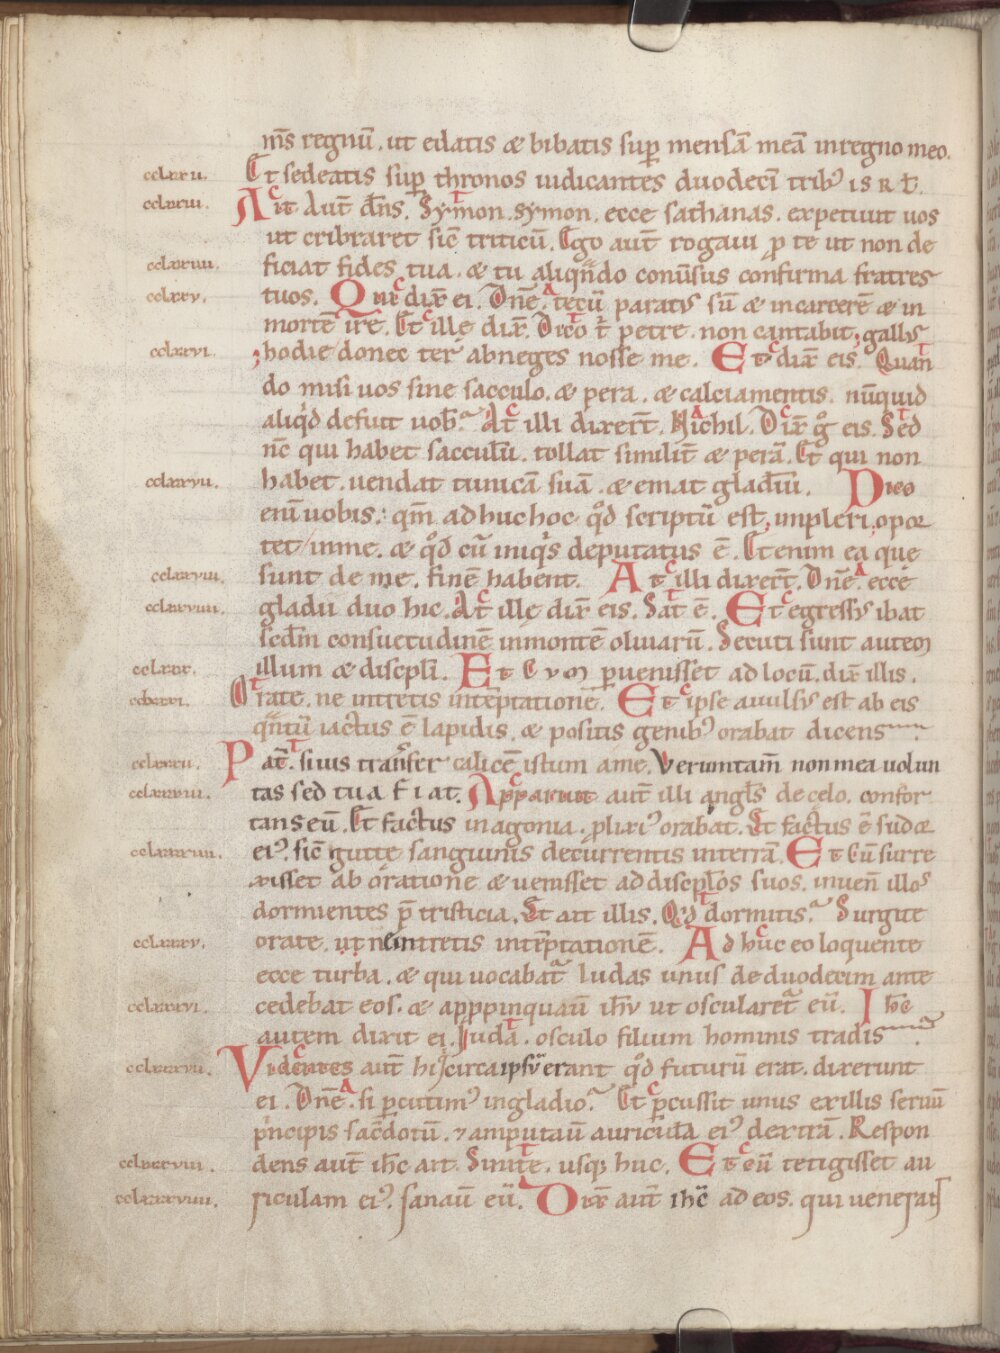 m̅s regnū. ut edatis & bibatis sup̄ mensā meā inregno meo.
cclxxii. Et sedeatis sup̄ thronos iudicantes duodecī tribꝰ isrł.
cclxxiii. Ait aut̄ dn̄s. Symon. symon. ecce sathanas. expetiuit uos
ut cribraret sic̄ triticū. Ego aut̄ rogaui ꝓ te ut non de
cclxxiiii. ficiat fides tua. & tu aliqn̄do conūsus cōfirma fratres
cclxxv. tuos. Qui dix̄ ei. Dn̄e. tecū paratꝰ sū & incarcerē & in
mortē ire. Et ille dix̄. Dico t̄ petre. non cantabit gallꝰ
cclxxvi. hodie donec ter abneges nosse me. Et dix̄ eis. Quan
do misi uos sine sacculo. & pera. & calciamentis. nūquid
aliqd defuit uob̄? At illi dixer̄t. Nichil. Dix̄ g̊ eis. Sed
nc̄ qui habet sacculū. tollat similit̄ & perā. Et qui non
cclxxvii. habet. uendat tunicā suā. & emat gladiū. Dico
enī uobis. qm̄ adhuc hoc qd̄ scriptū est, inpleri opor
tet inme. & qd̄ cū iniqis deputatus ē. Etenim ea que
cclxxviii. sunt de me. finē habent. At illi dixer̄t. Dn̄e ecce
cclxxviiii. gladii duo hic. At ille dix̄ eis. Sat ē. Et egressꝰ ibat
scd̄m consuetudinē inmontē oliuarū. Secuti sunt autem
cclxxx. illum & discipl̄i. Et cum ꝑuenisset ad locū. dix̄ illis.
cclxxxi. Orate. ne intretis intēptationē. Et ipse auulsꝰ est ab eis
qn̄tū iactus ē lapidis. & positis genibꝰ orabat dicens
cclxxxii. Pat̄. si uis transfer calicē istum ame. Veruntam̄ non mea uolun
cclxxxiii. tas sed tua fiat. Apparuit aut̄ illi angls̄ de celo. confor
tans eū. Et factus inagonia. ꝓlixiꝰ orabat. Et factus ē sudor
cclxxxiiii. eiꝰ. sic̄ gutte sanguinis decurrentis interrā. Et cū surre
xisset ab oratione & uenisset ad disciplos suos. inuen̄ illos
dormientes p̄ tristicia. Et ait illis. Qid dormitis? Surgite
cclxxxv. orate. ut ne intretis intēptationē. Adhuc eo loquente
ecce turba. & qui uocabat̄ Iudas unus de duodecim ante
cclxxxvi. cedebat eos. & appropinquau̅ ihū ut oscularet̄ eū. Ihc̄
autem dixit ei. Iuda. osculo filium hominis tradis?
cclxxxvii. Videntes aut̄ hi qi circa ipsū erant qd̄ futurū erat. dixerunt
ei. Dn̄e. si ꝑcutimꝰ ingladio? Et ꝑcussit unus exillis seruū
pncipis sac̄dotū. ⁊ amputau̅ auriculā eiꝰ dextrā. Respon
cclxxxviii. dens aut̄ ihc̄ ait. Sinite. usqꝫ huc. Et cū tetigisset au
cclxxxviiii. riculam eiꝰ. sanau̅ eū. Dix̄ aut̄ ihc̄ ad eos. qui uenerat̄